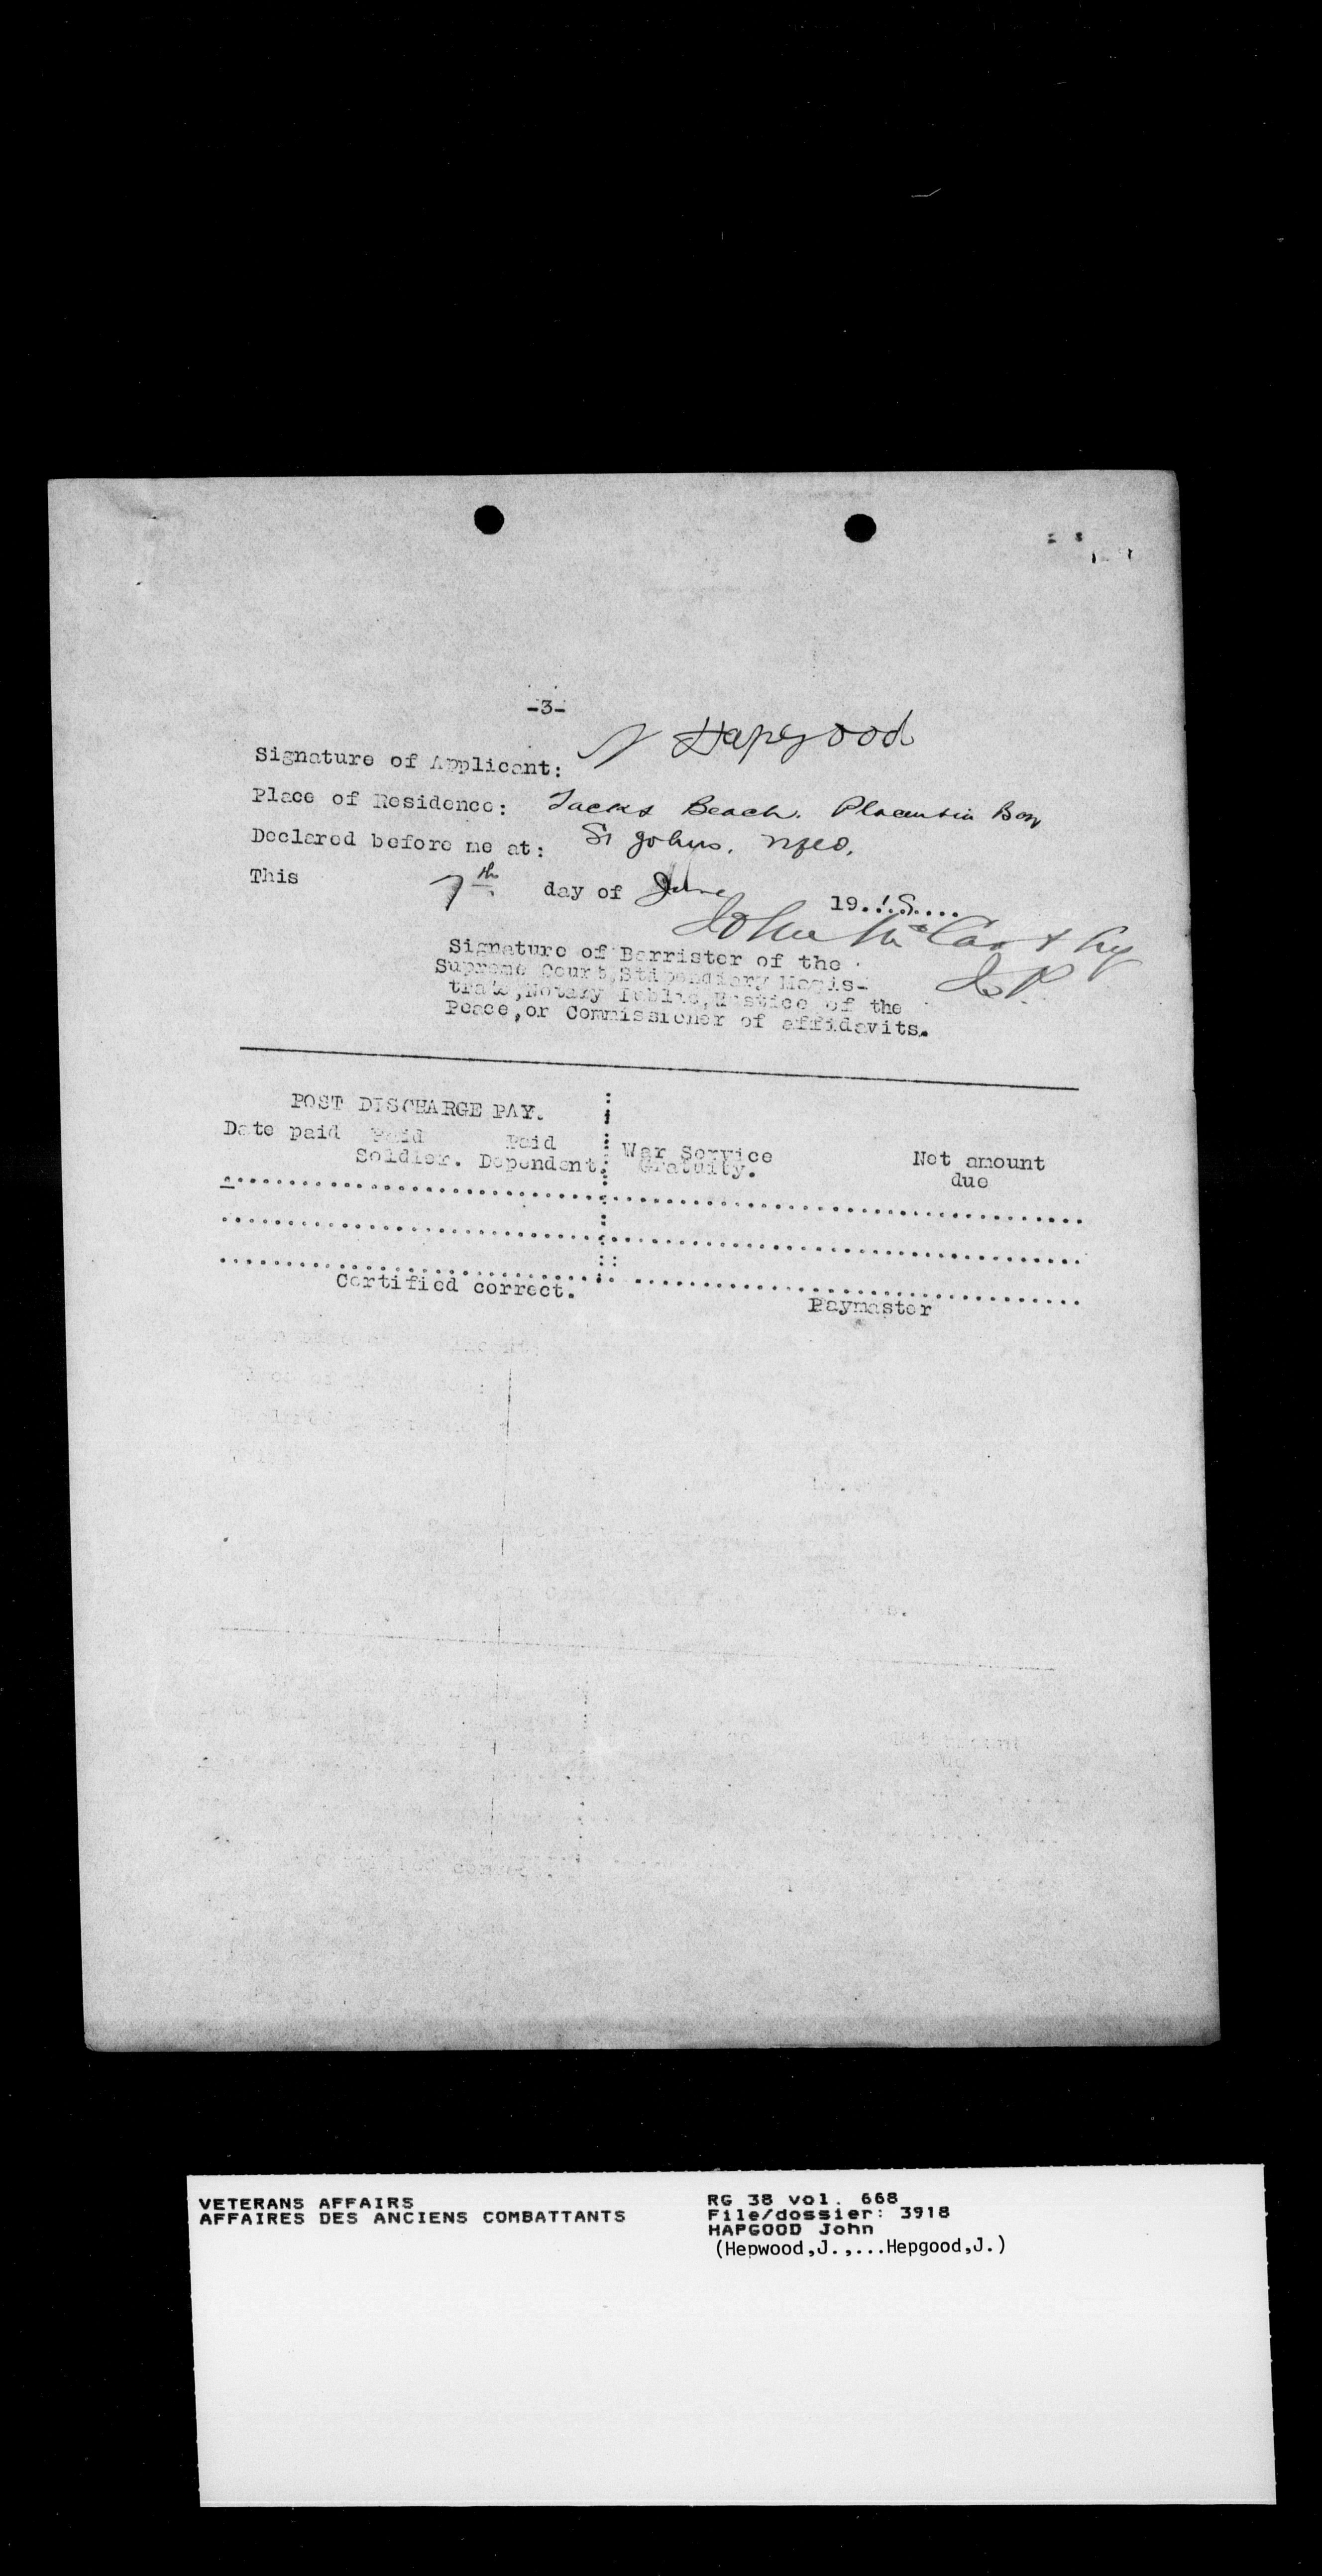 -3-
Signature of Applicant: J Hapgood
Place of Residence: Jacks Beach. Placentia Bay
Declared before me at: St Johns. Nfld.
This 7th day of June 19
John McCarthy
J.P.
Signature of Barrister of the
Supreme Court, Stipendiary Magis-
trate, Notary Public, Justice of the
Peace, or Commissioner of affidavits.
POST DISCHARGE PAY.
Date paid Paid Paid War Service Net amount
Soldier. Dependent. Gratuity. due
Certified correct.
Paymaster
VETERANS AFFAIRS
AFFAIRES DES ANCIENS COMBATTANTS
RG 38 vol. 668
File/dossier: 3918
HAPGOOD John
(Hepwood,J.,...Hepgood,J.)